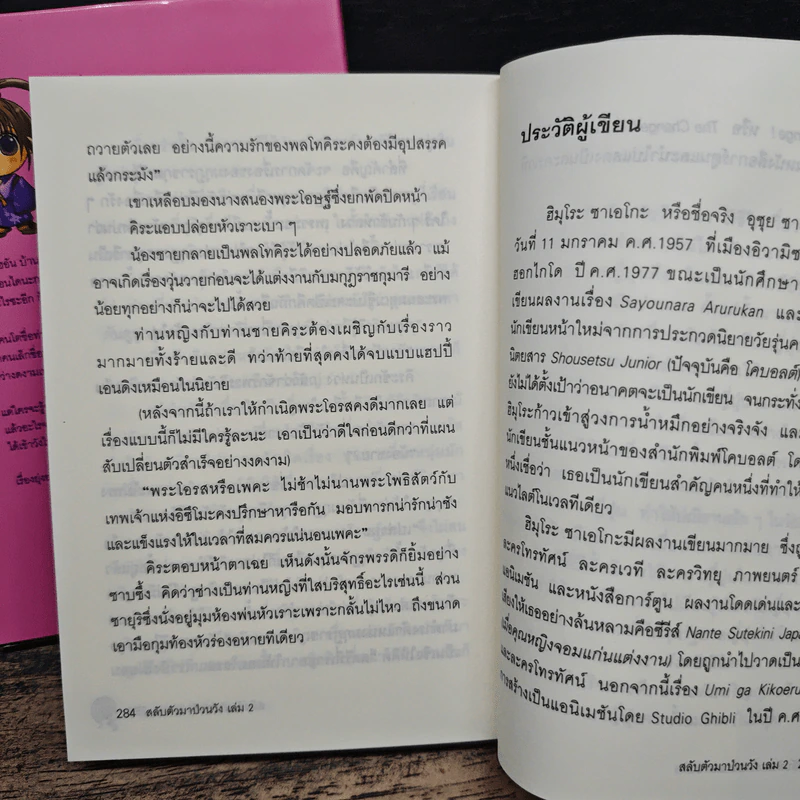 ถวายตัวเลย อย่างนี้ความรักของพลโทคิระคงต้องมีอุปสรรค
แล้วกระมัง”
เขาเหลือบมองนางสนองพระโอษฐ์ซึ่งยกพัดปิดหน้า
คิระแอบปล่อยหัวเราะเบา ๆ
น้องชายกลายเป็นพลโทคิระได้อย่างปลอดภัยแล้ว แม้
อาจเกิดเรื่องวุ่นวายก่อนจะได้แต่งงานกับมกุฎราชกุมารี อย่าง
น้อยทุกอย่างก็น่าจะไปได้สวย
ท่านหญิงกับท่านชายคิระต้องเผชิญกับเรื่องราว
มากมายทั้งร้ายและดี ทว่าท้ายที่สุดคงได้จบแบบแฮปปี้
เอนดิงเหมือนในนิยาย
(หลังจากนี้ถ้าเราให้กำเนิดพระโอรสคงดีมากเลย แต่
เรื่องแบบนี้ก็ไม่มีใครรู้ละนะ เอาเป็นว่าดีใจก่อนดีกว่าที่แผน
สับเปลี่ยนตัวสำเร็จอย่างงดงาม)
“พระโอรสหรือเพคะ ไม่ช้าไม่นานพระโพธิสัตว์กับ
เทพเจ้าแห่งอิซึโมะคงปรึกษาหารือกัน มอบทารกน่ารักน่าชัง
และแข็งแรงให้ในเวลาที่สมควรแน่นอนเพคะ”
คิระตอบหน้าตาเฉย เห็นดังนั้นจักรพรรดิก็ยิ้มอย่าง
ซาบซึ้ง คิดว่าช่างเป็นท่านหญิงที่ใสบริสุทธิ์อะไรเช่นนี้ ส่วน
ซายุริซึ่งนั่งอยู่มุมห้องพ่นหัวเราะเพราะกลั้นไม่ไหว ถึงขนาด
เอามือกุมท้องหัวร่องอหายทีเดียว
284 สลับตัวมาป่วนวัง เล่ม 2
ประวัติผู้เขียน
ฮิมุโระ ซาเอโกะ หรือชื่อจริง อุซุย ซา
วันที่ 11 มกราคม ค.ศ.1957 ที่เมืองอิวามิซ
ฮอกไกโด ปี ค.ศ.1977 ขณะเป็นนักศึกษา
เขียนผลงานเรื่อง Sayounara Arurukan และ
นักเขียนหน้าใหม่จากการประกวดนิยายวัยรุ่นค
นิตยสาร Shousetsu Junior (ปัจจุบันคือ โคบอลต์)
ยังไม่ได้ตั้งเป้าว่าอนาคตจะเป็นนักเขียน จนกระทั่ง
ฮิมุโระก้าวเข้าสู่วงการน้ำหมึกอย่างจริงจัง และ
นักเขียนชั้นแนวหน้าของสำนักพิมพ์โคบอลต์ โด
หนึ่งเชื่อว่า เธอเป็นนักเขียนสำคัญคนหนึ่งที่ทำให้
แนวไลต์โนเวลทีเดียว
ฮิมุโระ ซาเอโกะมีผลงานเขียนมากมาย ซึ่งถู
ละครโทรทัศน์ ละครเวที ละครวิทยุ ภาพยนตร์
แอนิเมชัน และหนังสือการ์ตูน ผลงานโดดเด่นและ
เสียงให้เธออย่างล้นหลามคือซีรีส์ Nante Sutekini Japa
เมื่อคุณหญิงจอมแก่นแต่งงาน) โดยถูกนำไปวาดเป็น
และละครโทรทัศน์ นอกจากนี้เรื่อง Umi ga Kikoeru
การสร้างเป็นแอนิเมชันโดย Studio Ghibli ในปี ค.ศ
สลับตัวมาป่วนวัง เล่ม 2